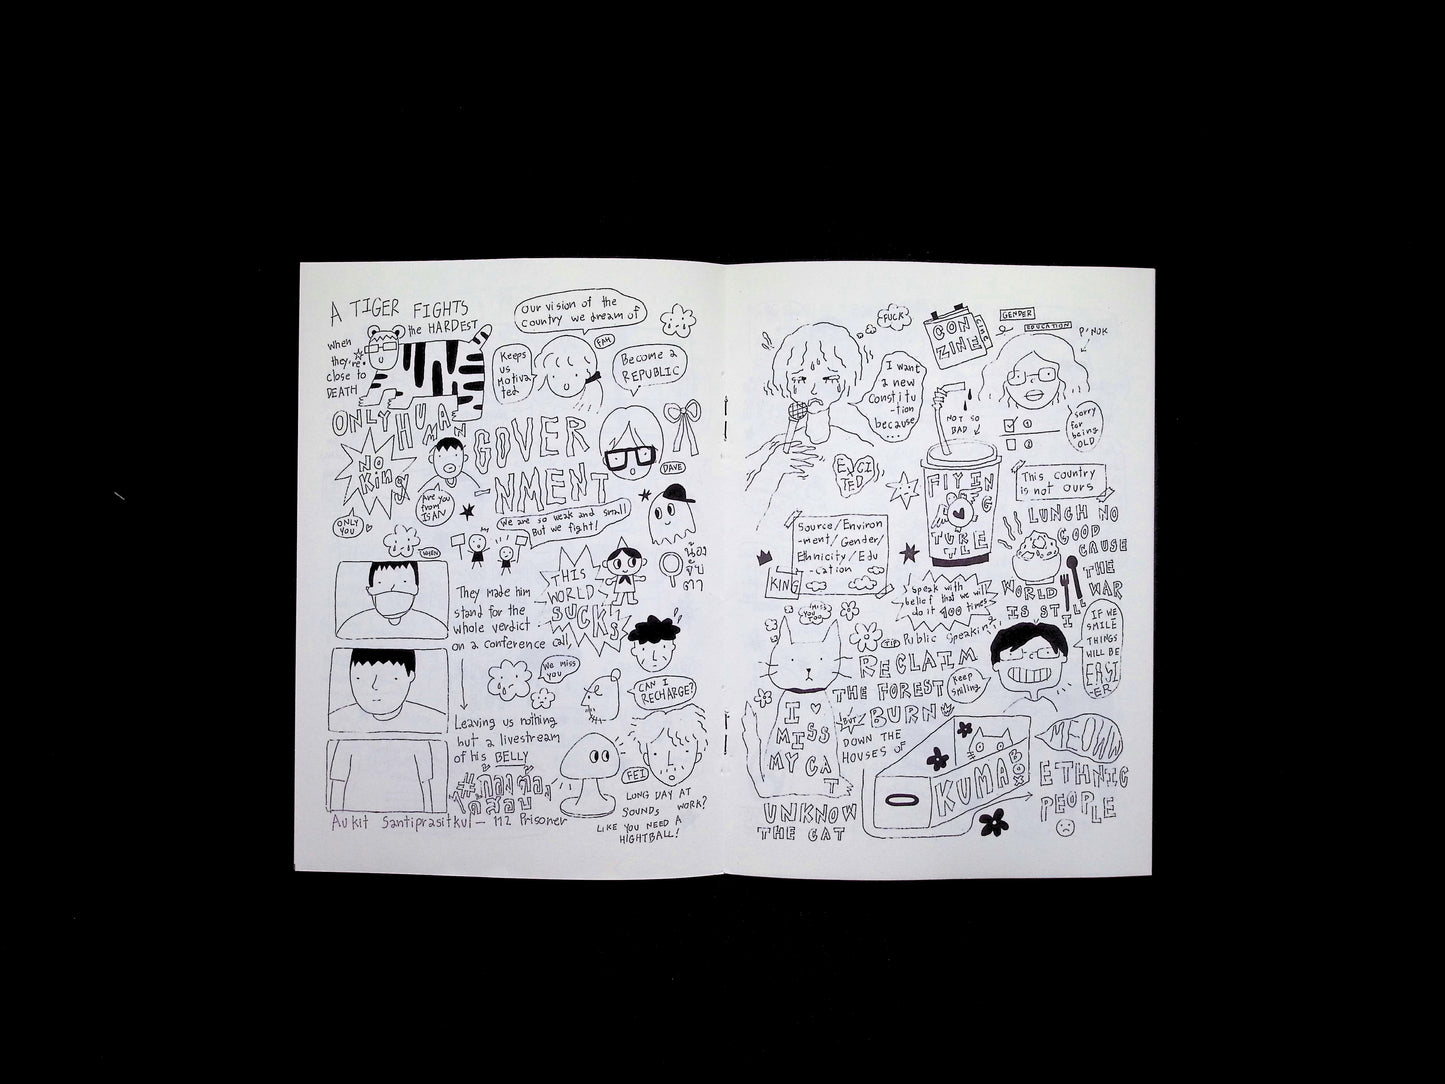 A TIGER FIGHTS
the HARDEST
when
they're
close to
DEATH
Our vision of the
country we dream of
Keeps
us
Motiva
ted
FAH
Become a
REPUBLIC
ONLY HUMAN
NO
King
GOVER
NMENT
DAVE
Are you
from
ISAN
ONLY
YOU
We are so weak and small
But we fight!
WHEN
THIS
WORLD
SUCKS
น้อง
จับ
ตา
They made him
stand for the
whole verdict
on a conference call,
We miss
you
CAN I
RECHARGE?
Leaving us nothing
but a livestream
of his BELLY
#ก้องต้อง
ได้สอบ
FEI
LONG DAY AT
WORK?
SOUNDS
LIKE YOU NEED A
HIGHTBALL!
Aukit Santiprasitkul — 112 Prisoner
FUCK
CON
ZINE
GENDER
EDUCATION
P'NUK
I want
a new
Constitu
-tion
because
...
NOT SO
BAD
Sorry
for
being
OLD
EXCI
TED
FLYIN
G
TURE
TLE
This country
is not ours
Source/Environ
-ment/Gender/
Ethnicity/Edu
-cation
KING
LUNCH NO
GOOD
CAUSE
THE
WAR
WORLD
IS STIL
Speak with
belief that we will
do it 400 times
I MISS
YOU
TOO
TIP Public Speaking
IF WE
SMILE
THINGS
WILL BE
EASI
ER
Keep
Smiling
RECLAIM
THE FOREST
BUT BURN
DOWN THE
HOUSES OF
I
MISS
MY CA
T
MEOWW
KUMA
BOX
ETHNIC
PEOPLE
UNKNOW
THE CAT